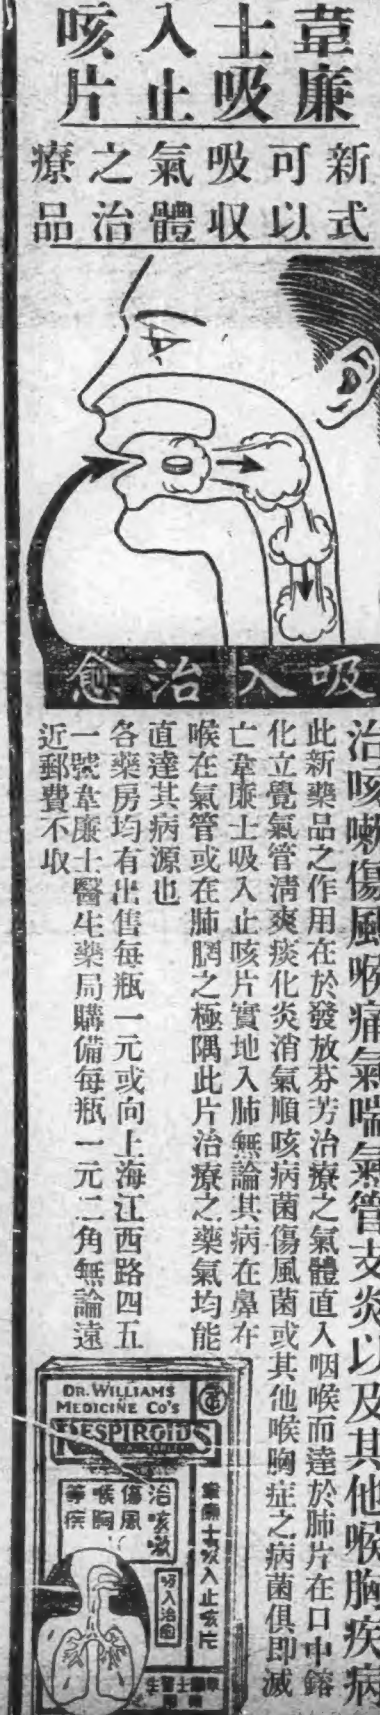 韋廉士吸入止咳片
新式可以吸收氣體之治療品
吸入治愈
治咳嗽傷風喉痛氣喘氣管支炎以及其他喉胸疾病
此新藥品之作用在於發放芬芳治療之氣體直入咽喉而達於肺片在口中鎔
化立覺氣管清爽痰化炎消氣順咳病菌傷風菌或其他喉胸症之病菌俱即滅
亡韋廉士吸入止咳片實地入肺無論其病在鼻在
喉在氣管或在肺膈之極隅此片治療之藥氣均能
直達其病源也
各藥房均有出售每瓶一元或向上海江西路四五
一號韋廉士醫生藥局購備每瓶一元二角無論遠
近郵費不取
DR. WILLIAMS
MEDICINE CO'S
RESPIROIDS
韋廉士吸入止咳片
治咳嗽
傷風
喉胸
等疾
吸入治愈